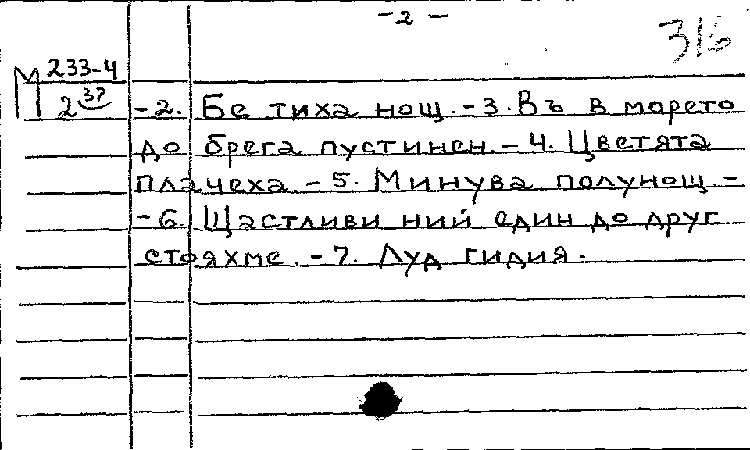 - 2 -
316
М 233-4
2 37
- 2. Бе тиха нощ. - 3. Въ в морето
до брега пустинен. - 4. Цветята
плачеха - 5. Минува полунощ -
- 6. Щастливи ний един до друг
стояхме. - 7. Луд гидия.